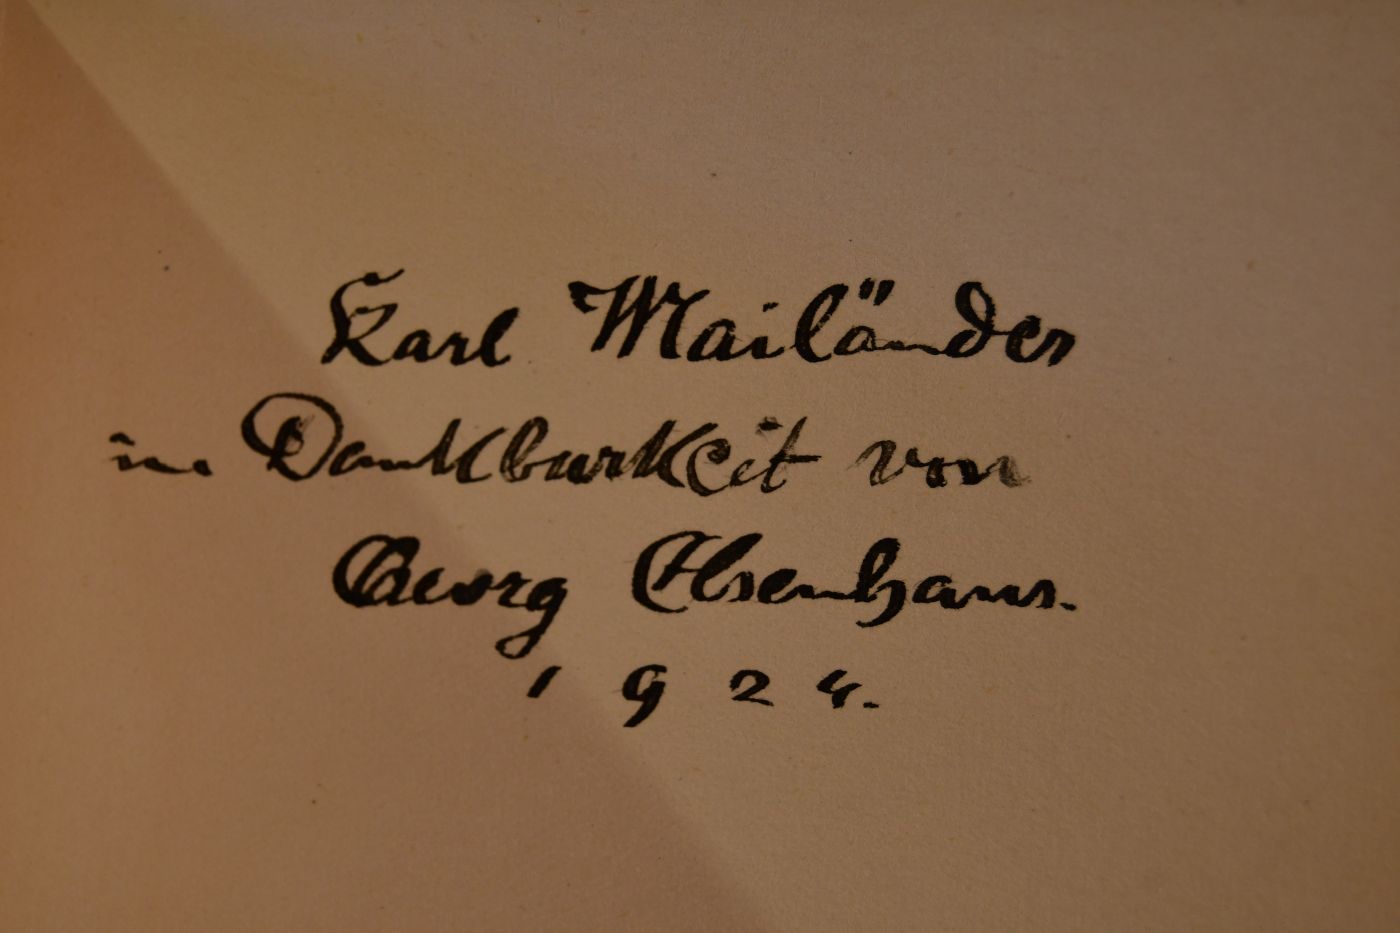 Karl Mailänder
in Dankbarkeit von
Georg Elsenhans.
1924.